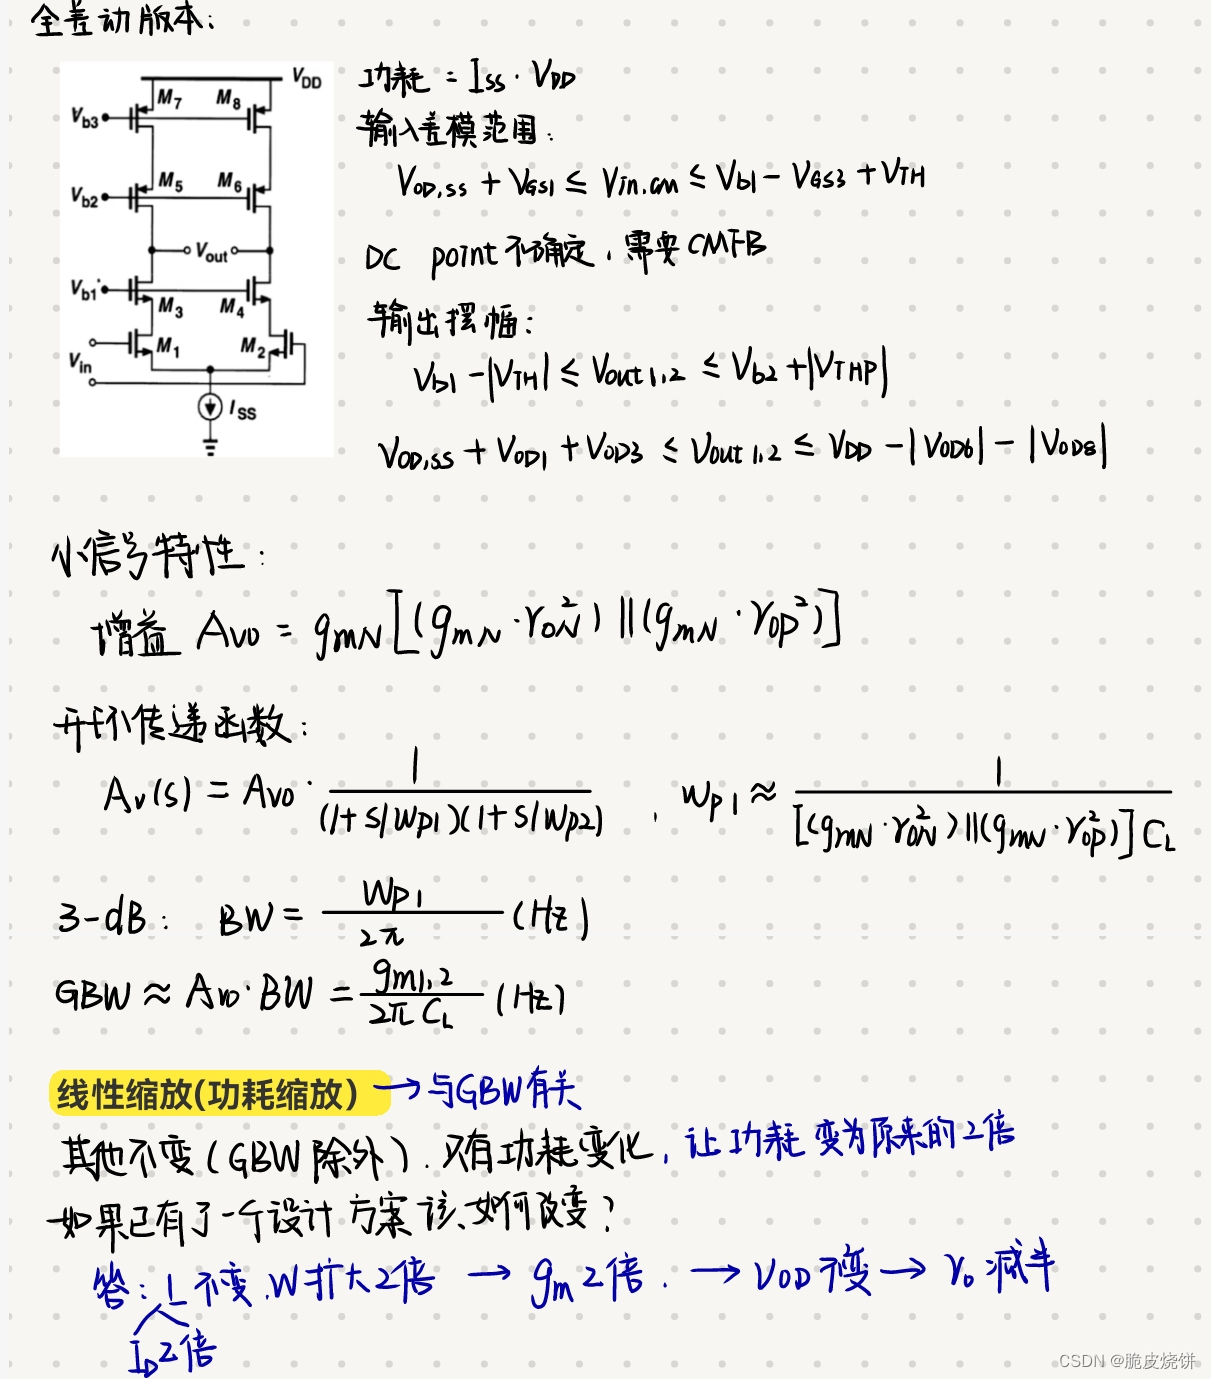 全差动版本:
V_DD
M7 M8
Vb3
M5 M6
Vb2
Vout
Vb1
M3 M4
M1 M2
Vin
I_SS
功耗 = I_SS · V_DD
输入差模范围:
V_OD,SS + V_GS1 ≤ V_in,cm ≤ V_b1 - V_GS3 + V_TH
DC point 不确定,需要CMFB
输出摆幅:
V_b1 - |V_TH| ≤ V_out1,2 ≤ V_b2 + |V_THP|
V_OD,SS + V_OD1 + V_OD3 ≤ V_out1,2 ≤ V_DD - |V_OD6| - |V_OD8|
小信号特性:
增益 A_V0 = g_mN[(g_mN · r_oN²) || (g_mN · r_oP²)]
开环传递函数:
A_v(s) = A_V0 · 1/((1+s/w_p1)(1+s/w_p2)) , w_p1 ≈ 1/([(g_mN · r_oN²) || (g_mN · r_oP²)] C_L)
3-dB: BW = w_p1/2π (Hz)
GBW ≈ A_v0 · BW = g_m1,2/(2π C_L) (Hz)
线性缩放(功耗缩放) → 与GBW有关
其他不变(GBW除外).只有功耗变化,让功耗变为原来的2倍
如果已有了一个设计方案该如何改变?
答: L不变,W扩大2倍 → g_m 2倍. → V_OD不变 → r_o 减半
I_D 2倍
CSDN @脆皮烧饼